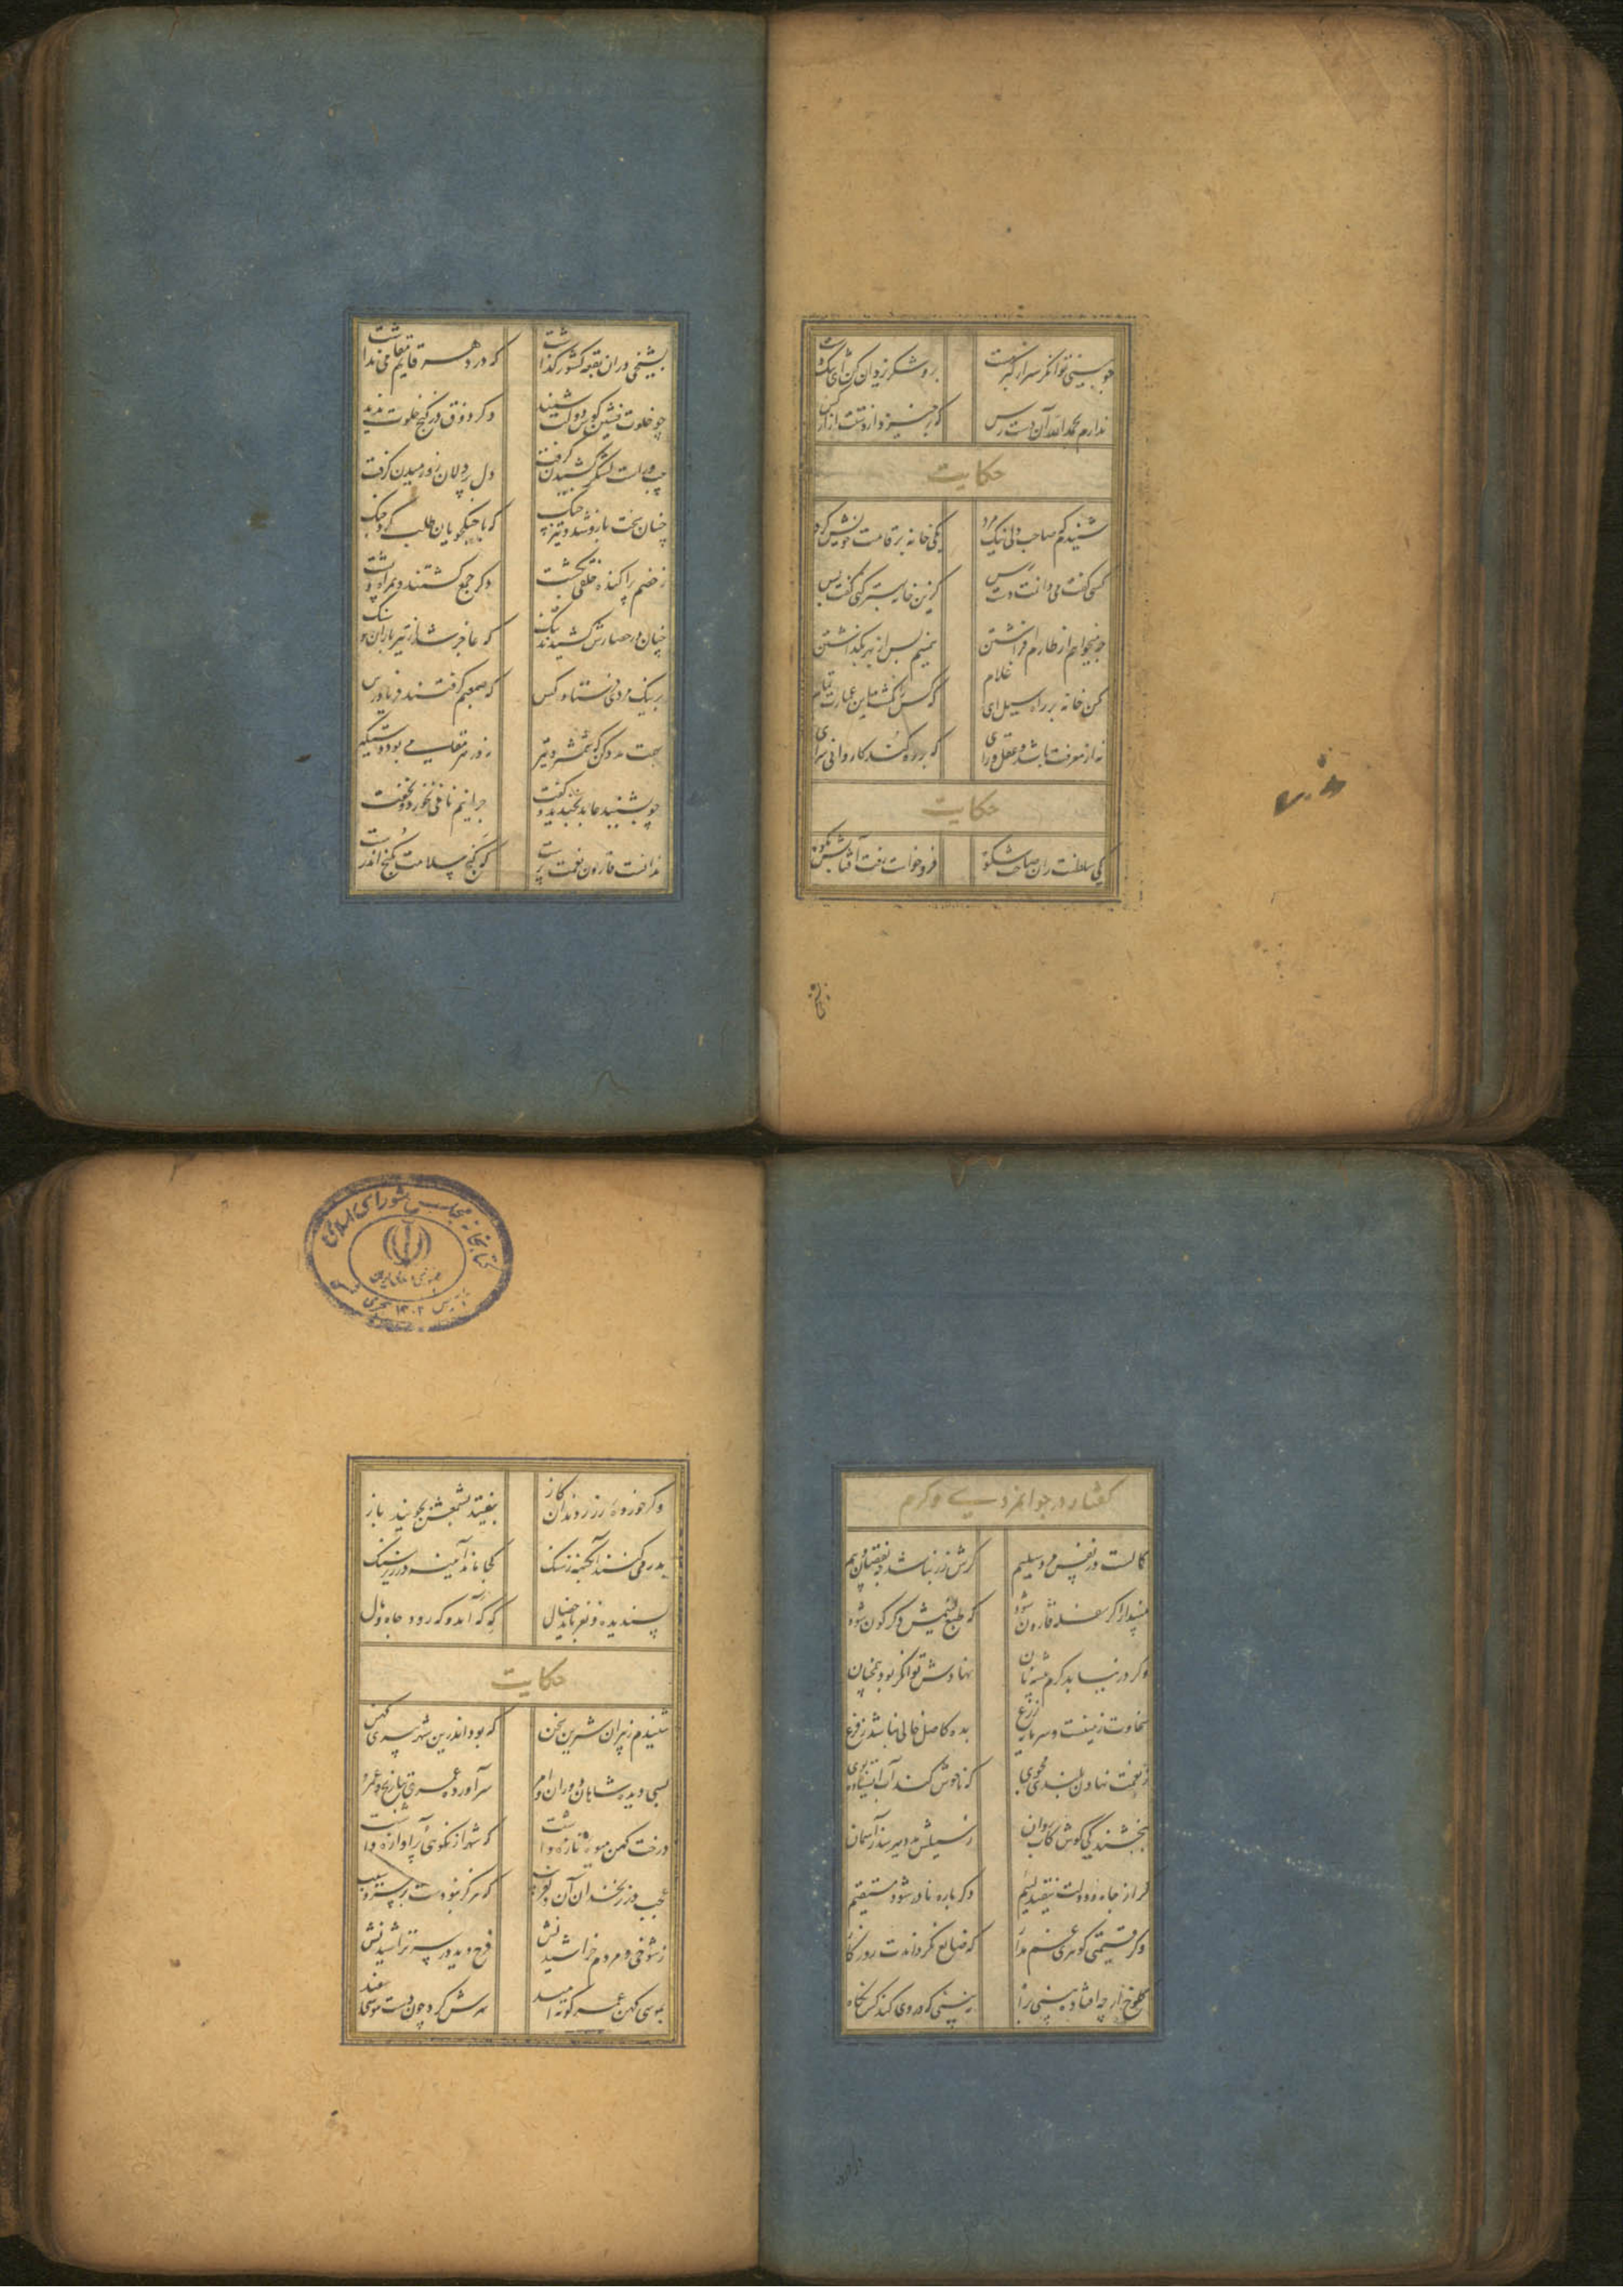 چو بینی توانگر سر از کبر مست برو شکر یزدان کن ای تنگدست
ندارم بحمدالله آن دست رس که برخیزد از دستم آزار کس
حکایت
شنیدم که صاحب دلی نیک مرد یکی خانه بر قامت خویش کرد
کسی گفت می دانمت دست رس کزین خانه بهتر کنی گفت بس
چه میخواهم از طارم افراشتن همینم بس از بهر بگذاشتن
مکن خانه بر راه سیل ای غلام که کس را نگشت این عمارت تمام
نه از معرفت باشد و عقل و رای که بر ره کند کاروانی سرای
حکایت
یکی سلطنت ران صاحب شکوه فرو خواست رفت آفتابش بکوه
بشیخی در ان بقعه کشور گذاشت که در دوده قایم مقامی نداشت
چو خلوت نشین کوس دولت شنید دگر ذوق در کنج خلوت ندید
چپ و راست لشکر کشیدن گرفت دل پردلان زو رمیدن گرفت
چنان سخت بازو شد و تیز چنگ که با جنگجویان طلب کرد جنگ
ز خصم پراکنده خلقی بکشت دگر جمع گشتند و همراه و پشت
چنان در حصارش کشیدند تنگ که عاجز شد از تیر باران و سنگ
بر نیک مردی فرستاد کس که صعبم گرفتند فریاد رس
بهمت مدد کن که شمشیر و تیر نه در هر بود دستگیر
چو بشنید عابد بخندید و گفت چرا نیم نانی نخورد و نخفت
ندانست قارون نعمت پرست که گنج سلامت بکنج اندرست
گفتار در جوانمردی و کرم
کمالست در نفس مرد سلیم گرش زر نباشد چه نقصان و بیم
مپندار اگر سفله قارون شود که طبع لئیمش دگرگون شود
وگر در نیابد کرم پیشه نان نهادش توانگر بود همچنان
سخاوت زمینست و سرمایه زرع بده کاصل خالی نباشد ز فرع
ز نعمت نهادن بلندی مجوی که ناخوش کند آب استاده بوی
ببخشندگی کوش کاب روان ز سیلش مدد میرسد ز آسمان
گر از جاه و دولت بیفتد لئیم دگر باره نادر شود مستقیم
وگر قیمتی گوهری غم مدار که ضایع نگرداندت روزگار
کلوخ ار چه افتاده بینی براه نبینی که در وی کند کس نگاه
کتابخانه مجلس شورای اسلامی
جمهوری اسلامی ایران
تاسیس ۱۳۰۲ هجری
وگر خورده زر ز دندان گاز بیفتد بشمعش بجویند باز
بدر می کنند آبگینه ز سنگ کجا ماند آیینه در زیر زنگ
پسندیده و نغز باید خصال که گه آید و گه رود جاه و مال
حکایت
شنیدم ز پیران شیرین سخن که بود اندرین شهر پیری کهن
بسی دیده شاهان و دوران و امر سر آورده عمری ز تاریخ عمرو
درخت کهن میوه تازه داشت که شهر از نکوئی پر آوازه داشت
عجب در زنخدان آن دلفریب که هرگز نبودست بر سرو سیب
ز شوخی و مردم خراشیدنش فرج دید در سر تراشیدنش
بموسی کهن عمر کوته امید سرش کرد چون دست موسی سفید